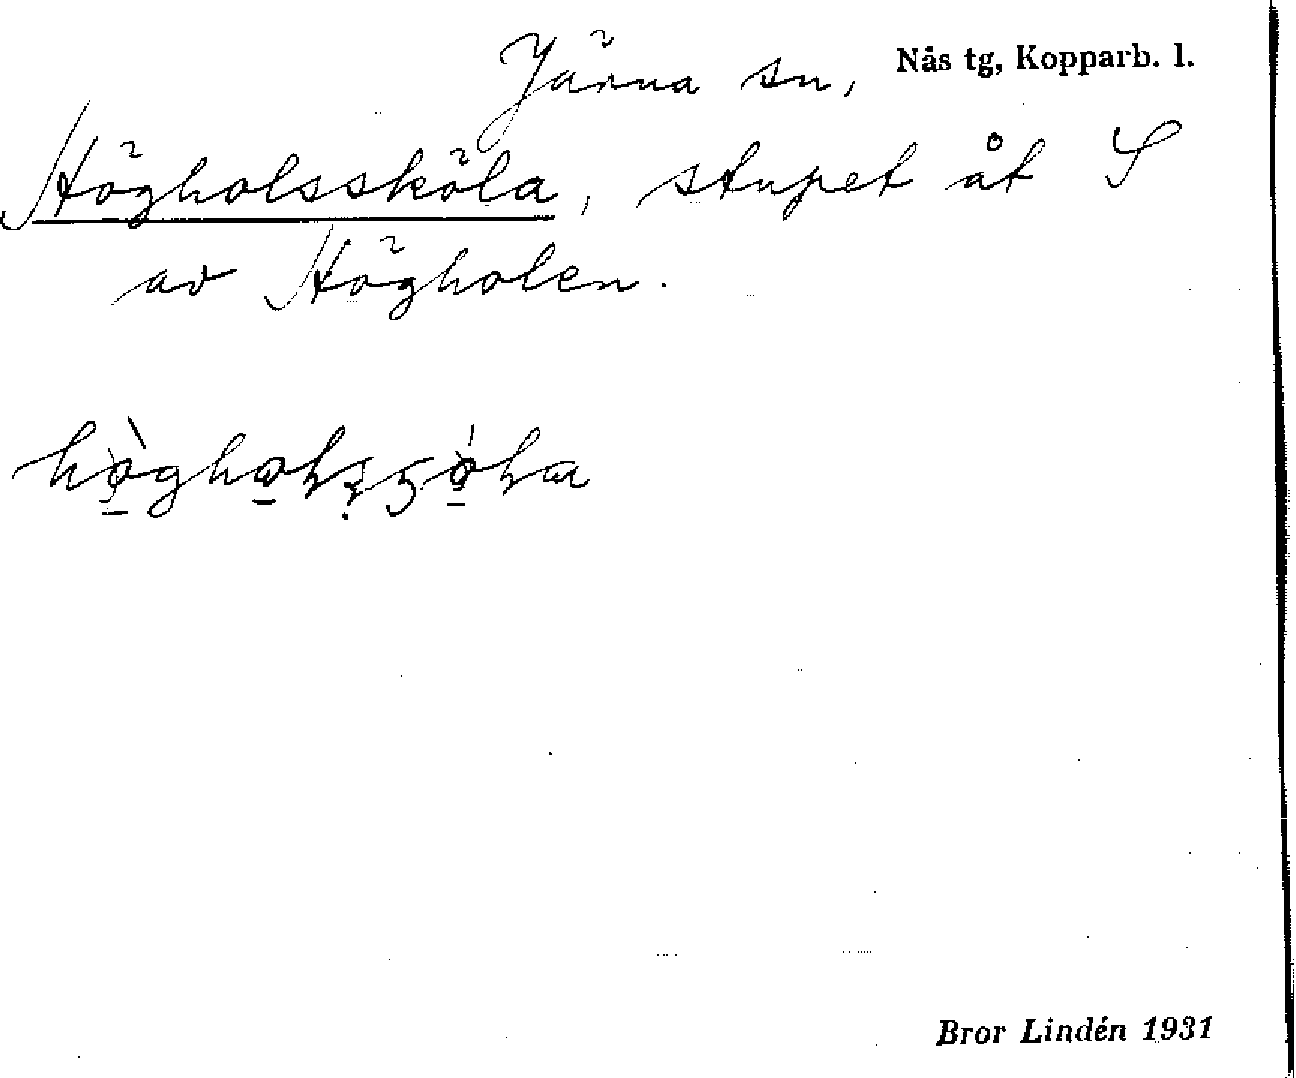 Järna sn, Nås tg, Kopparb. l.
Högholssköla, stupet åt S
av Högholen.
Bror Lindén 1931